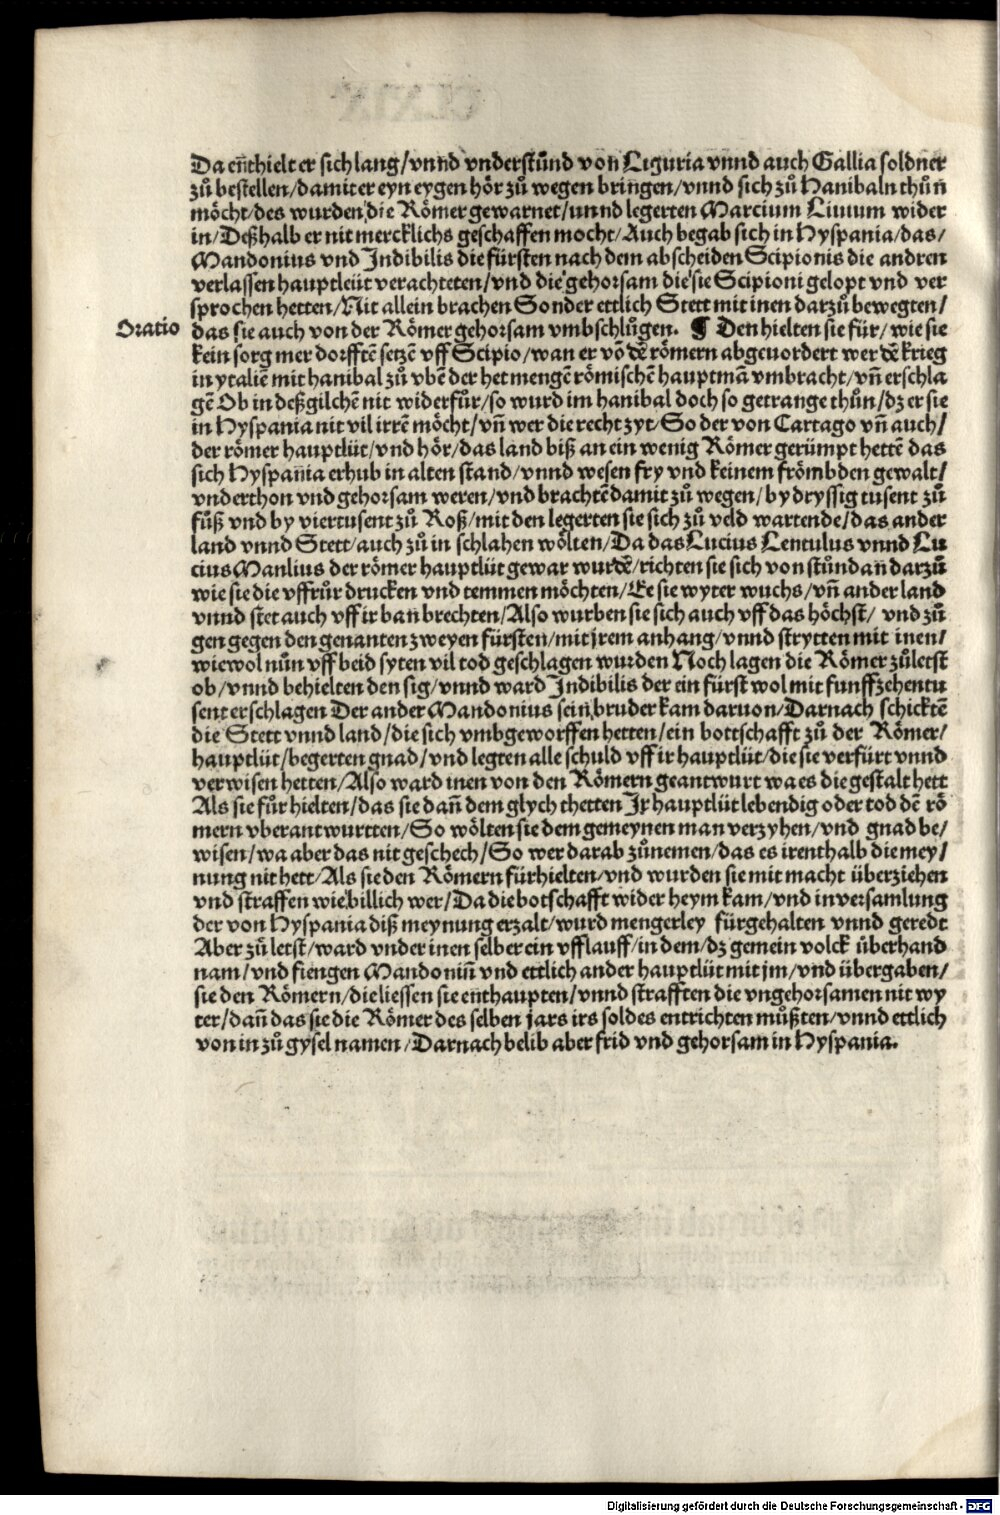 Da en̄thielt er sich lang/vnnd vnderstůnd von Liguria vnnd auch Gallia soldner
zů bestellen/damit er eyn eygen hör zů wegen bringen/vnnd sich zů Hanibaln thůn
möcht/des wurden die Römer gewarnet/unnd legerten Marcium Liuium wider
in/Deßhalb er nit mercklichs geschaffen mocht/Auch begab sich in Hyspania/das/
Mandonius vnd Indibilis die fürsten nach dem abscheiden Scipionis die andren
verlassen hauptleüt verachteten/vnd die gehorsam die sie Scipioni gelopt vnd ver
sprochen hetten/Nit allein brachen Sonder ettlich Stett mit inen darzů bewegten/
Oratio
das sie auch von der Römer gehorsam vmbschlůgen. ¶ Den hielten sie für/wie sie
kein sorg mer dorfftē setzē vff Scipio/wan er vō dē römern abgeuordert wer dē krieg
in ytaliē mit hanibal zů vbē der het mengē römischē hauptmā vmbracht/vn̄ erschla
gē Ob in deßgilchē nit widerfůr/so wurd im hanibal doch so getrange thůn/dz er sie
in Hyspania nit vil irrē möcht/vn̄ wer die recht zyt/So der von Cartago vn̄ auch/
der römer hauptlüt/vnd hör/das land biß an ein wenig Römer gerümpt hettē das
sich Hyspania erhub in alten stand/vnnd wesen fry vnd keinem frömbden gewalt/
vnderthon vnd gehorsam weren/vnd brachtē damit zů wegen/by dryssig tusent zů
fůß vnd by viertusent zů Roß/mit den legerten sie sich zů veld wartende/das ander
land vnnd Stett/auch zů in schlahen wölten/Da das Lucius Lentulus vnnd Lu
cius Manlius der römer hauptlüt gewar wurdē/richten sie sich von stůnd an darzů
wie sie die vffrůr drucken vnd temmen möchten/Ee sie wyter wuchs/vn̄ ander land
vnnd stet auch vff ir ban brechten/Also wurben sie sich auch vff das höchst/ vnd zů
gen gegen den genanten zweyen fürsten/mit jrem anhang/vnnd strytten mit inen/
wiewol nůn vff beid syten vil tod geschlagen wurden Noch lagen die Römer zůletst
ob/vnnd behielten den sig/vnnd ward Indibilis der ein fürst wol mit funffzehentu
sent erschlagen Der ander Mandonius sein bruder kam daruon/Darnach schicktē
die Stett vnnd land/die sich vmbgeworffen hetten/ein bottschafft zů der Römer/
hauptlüt/begerten gnad/vnd legten alle schuld vff ir hauptlüt/die sie verfürt vnnd
verwisen hetten/Also ward inen von den Römern geantwurt wa es die gestalt hett
Als sie für hielten/das sie dan̄ dem glych thetten Jr hauptlüt lebendig oder tod dē rö
mern vberantwurtten/So wölten sie dem gemeynen man verzyhen/vnd gnad be/
wisen/wa aber das nit geschech/So wer darab zůnemen/das es irenthalb die mey/
nung nit hett/Als sie den Römern fürhielten/vnd wurden sie mit macht überziehen
vnd straffen wie billich wer/Da die botschafft wider heym kam/vnd in versamlung
der von Hyspania diß meynung erzalt/wurd mengerley fürgehalten vnnd geredt
Aber zů letst/ward vnder inen selber ein vfflauff/in dem/dz gemein volck überhand
nam/vnd fiengen Mandoniū vnd ettlich ander hauptlüt mit jm/vnd übergaben/
sie den Römern/die liessen sie enthaupten/vnnd strafften die vngehorsamen nit wy
ter/dan̄ das sie die Römer des selben jars irs soldes entrichten můßten/vnnd ettlich
von in zů gysel namen/Darnach belib aber frid vnd gehorsam in Hyspania.
Digitalisierung gefördert durch die Deutsche Forschungsgemeinschaft - DFG